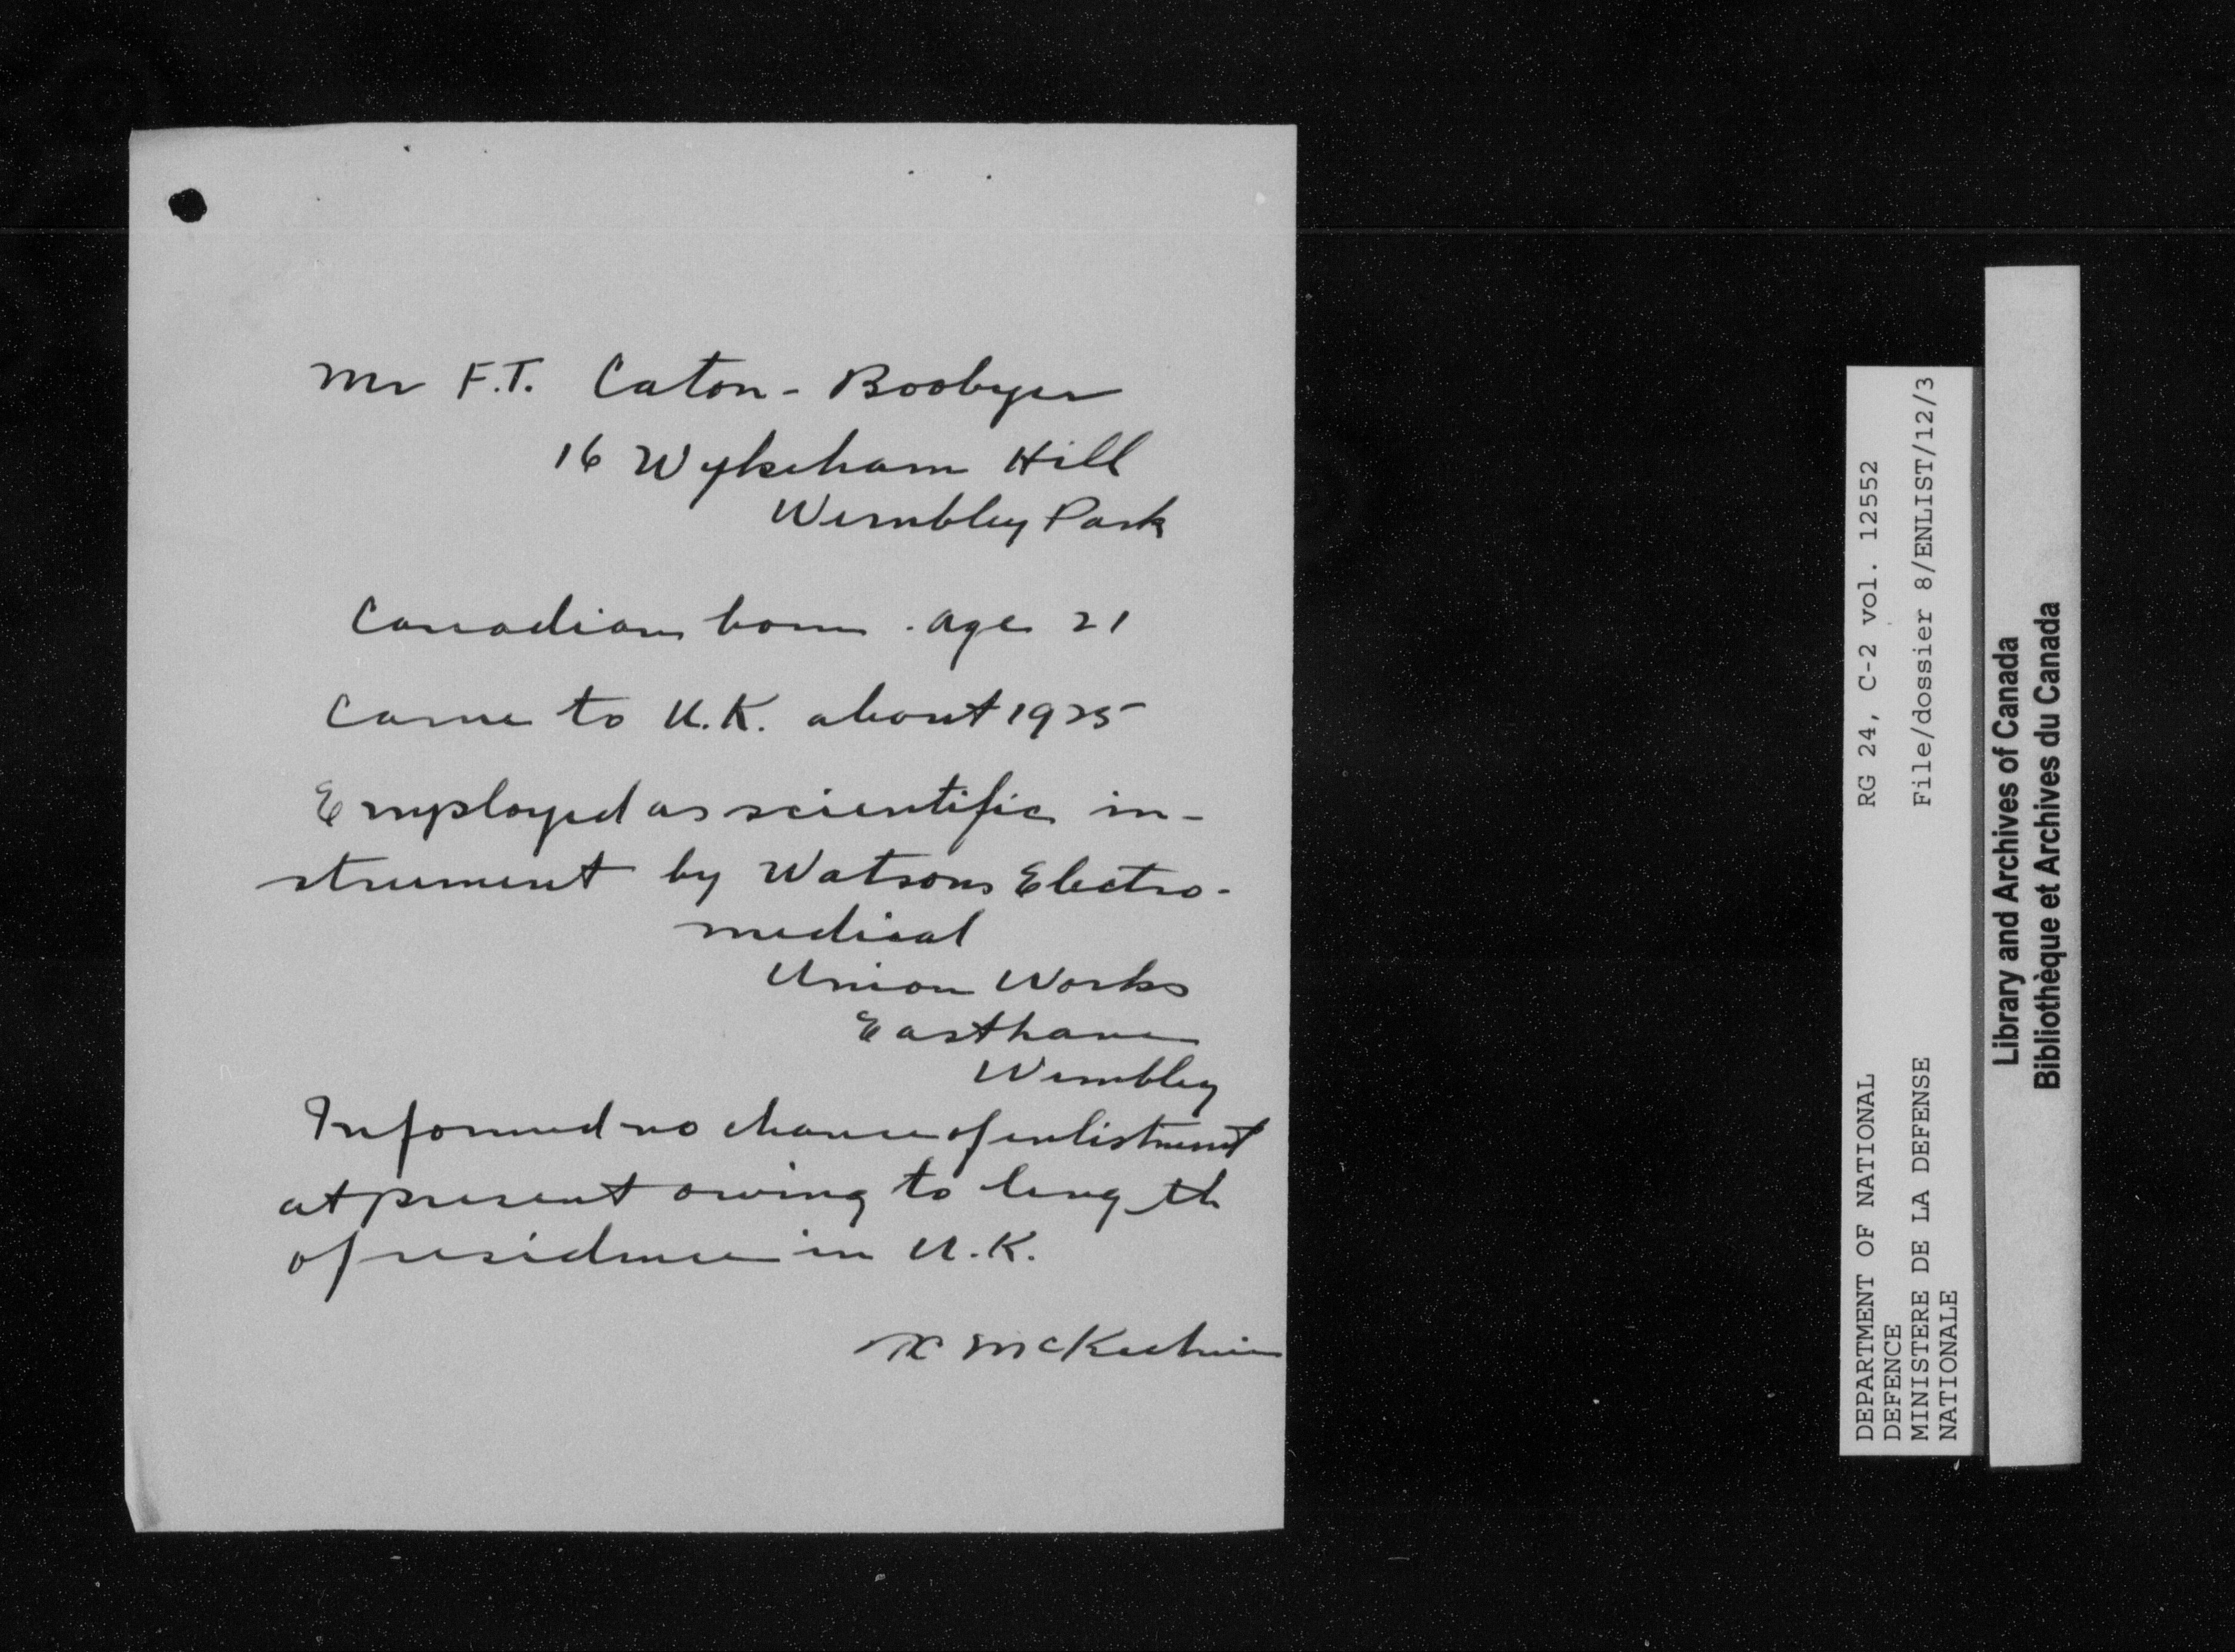 Mr F.T. Caton - Boobyer
16 Wykeham Hill
Wembley Park
Canadian born . age 21
Came to U.K. about 1925
Employed as scientific in-
strument by Watsons Electro-
medical
Union Works
Eastlane
Wembley
Informed no chance of enlistment
at present owing to length
of residence in U.K.
McKechnie
DEPARTMENT OF NATIONAL
DEFENCE
MINISTERE DE LA DEFENSE
NATIONALE
RG 24, C-2 vol. 12552
File/dossier 8/ENLIST/12/3
Library and Archives of Canada
Bibliothèque et Archives du Canada